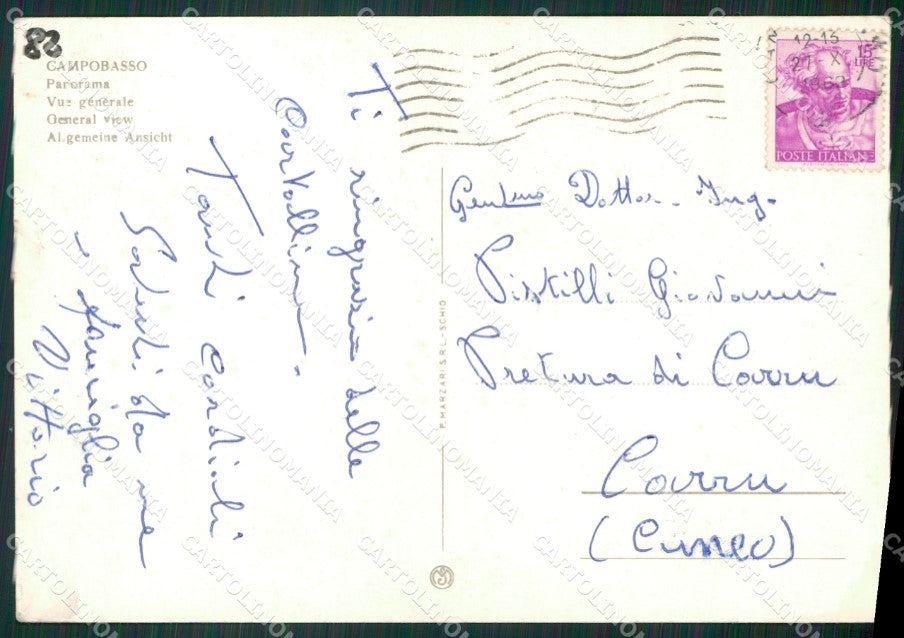 82
CAMPOBASSO
Panorama
Vue générale
General view
Algemeine Ansicht
12-15
15
LIRE
POSTE ITALIANE
Ti ringrazio della
Cartolina.
Tanti cordiali
Saluti da me
e famiglia
Vittorio
P. MARZARI S.R.L. - SCHIO
Gentmo Dottor. Ing.
Pistilli Giovanni
Pretura di Carru
Carru
(Cuneo)
CARTOLINOMANIA